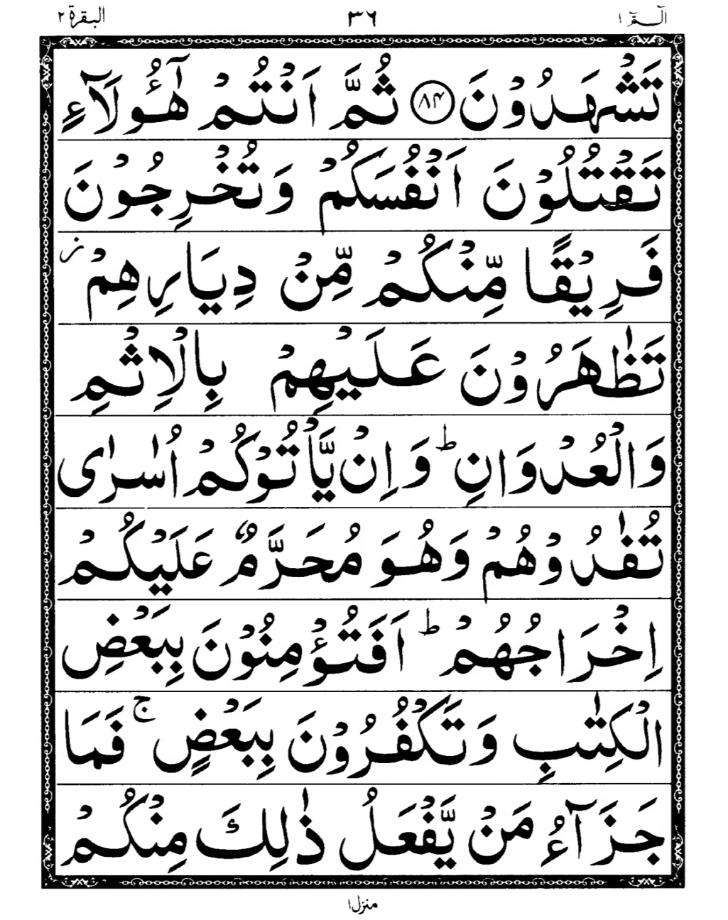 الٓـمّٓ ١ ٣٦ البقرة ٢
تَشْهَدُوْنَ ﴿٨٤﴾ ثُمَّ اَنْتُمْ هٰٓؤُلَآءِ
تَقْتُلُوْنَ اَنْفُسَكُمْ وَتُخْرِجُوْنَ
فَرِيْقًا مِّنْكُمْ مِّنْ دِيَارِهِمْ ز
تَظٰهَرُوْنَ عَلَيْهِمْ بِالْاِثْمِ
وَالْعُدْوَانِ ؕ وَاِنْ يَّاْتُوْكُمْ اُسٰرٰى
تُفٰدُوْهُمْ وَهُوَ مُحَرَّمٌ عَلَيْكُمْ
اِخْرَاجُهُمْ ؕ اَفَتُؤْمِنُوْنَ بِبَعْضِ
الْكِتٰبِ وَتَكْفُرُوْنَ بِبَعْضٍ ۚ فَمَا
جَزَآءُ مَنْ يَّفْعَلُ ذٰلِكَ مِنْكُمْ
منزل ١